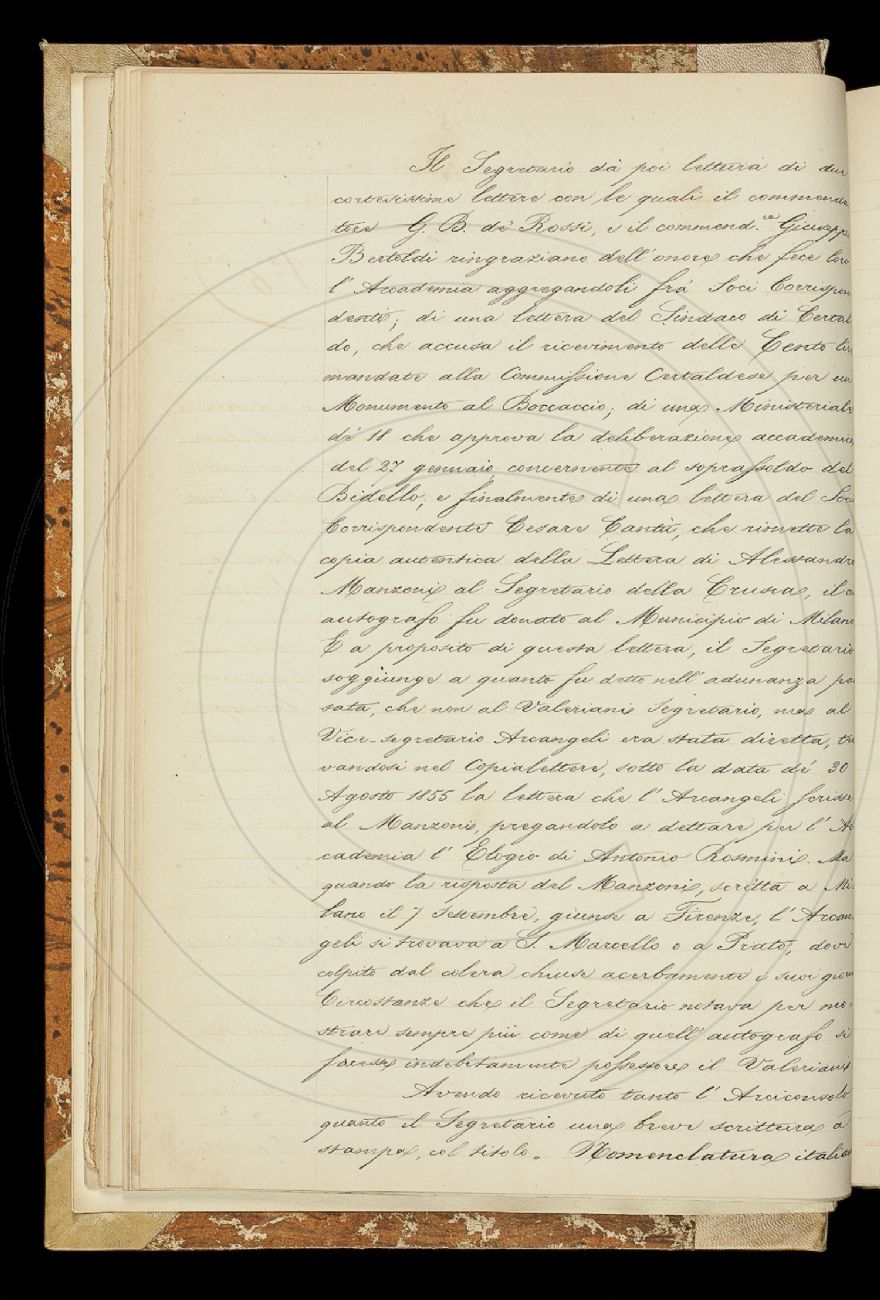 Il Segretario dà poi lettura di due
cortesissime lettere con le quali il commenda
tore G. B. de' Rossi, e il commend.re Giuseppe
Bertoldi ringraziano dell'onore che fece loro
l'Accademia aggregandoli fra' Soci Corrispon
denti; di una lettera del Sindaco di Certal
do, che accusa il ricevimento delle Cento lire
mandate alla Commissione Certaldese per un
Monumento al Boccaccio; di una Ministeriale
de' 18 che approva la deliberazione accademica
del 27 gennaio, concernente al soprassoldo del
Bidello, e finalmente di una lettera del Socio
Corrispondente Cesare Cantù, che rimette la
copia autentica della Lettera di Alessandro
Manzoni al Segretario della Crusca, il
autografo fu donato al Municipio di Milano
E a proposito di questa lettera, il Segretario
soggiunge a quanto fu detto nell'adunanza pas
sata, che non al Valeriani Segretario, ma al
Vice-segretario Arcangeli era stata diretta, tro
vandosi nel Copialettere, sotto la data de' 30
Agosto 1855 la lettera che l'Arcangeli scrisse
al Manzoni, pregandolo a dettare per l'Ac
cademia l'Elogio di Antonio Rosmini. Ma
quando la risposta del Manzoni, scritta a Mi
lano il 7 Settembre, giunse a Firenze, l'Arcan
geli si trovava a S. Marcello o a Prato, dove
colpito dal colera chiuse acerbamente i suoi giorni
Circostanze che il Segretario notava per mo
strare sempre più come di quell'autografo si
facesse indebitamente possessore il Valeriani
Avendo ricevuto tanto l'Arciconsolo
quanto il Segretario una breve scrittura a
stampa, col titolo „ Nomenclatura italiana